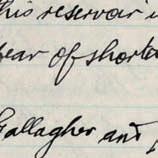 this reservoir i
fear of shorta
Gallagher and